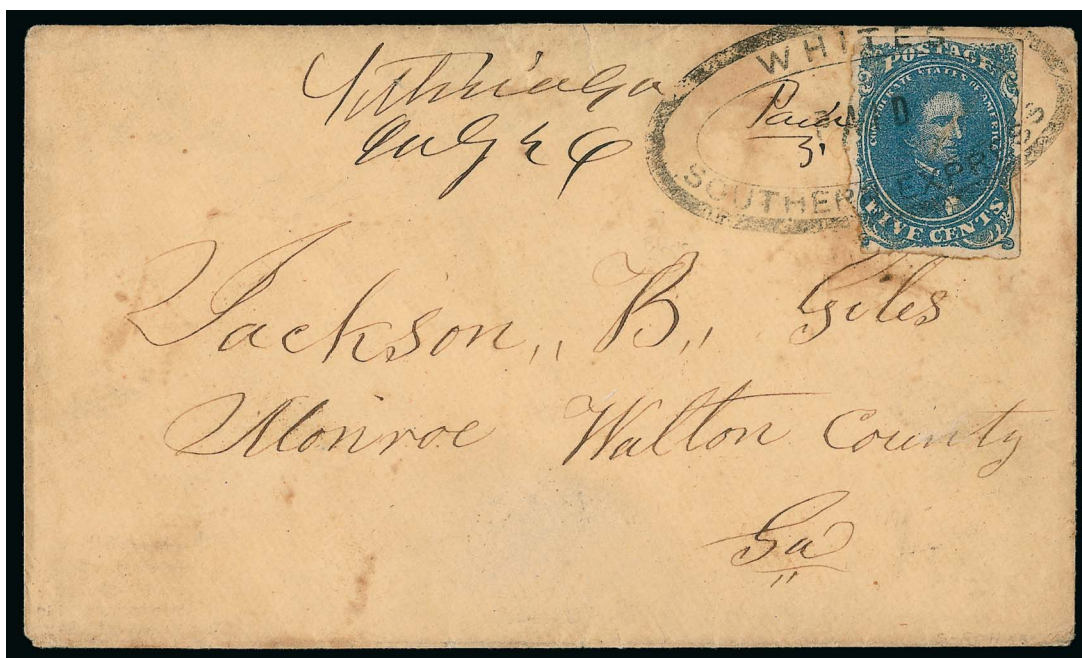 Lithonia Ga
July 26
WHITES
SOUTHERN EXPRESS
PAID
Paid 5
POSTAGE
CONFEDERATE STATES OF AMERICA
FIVE CENTS
Jackson,, B,, Giles
Monroe Walton County
Ga